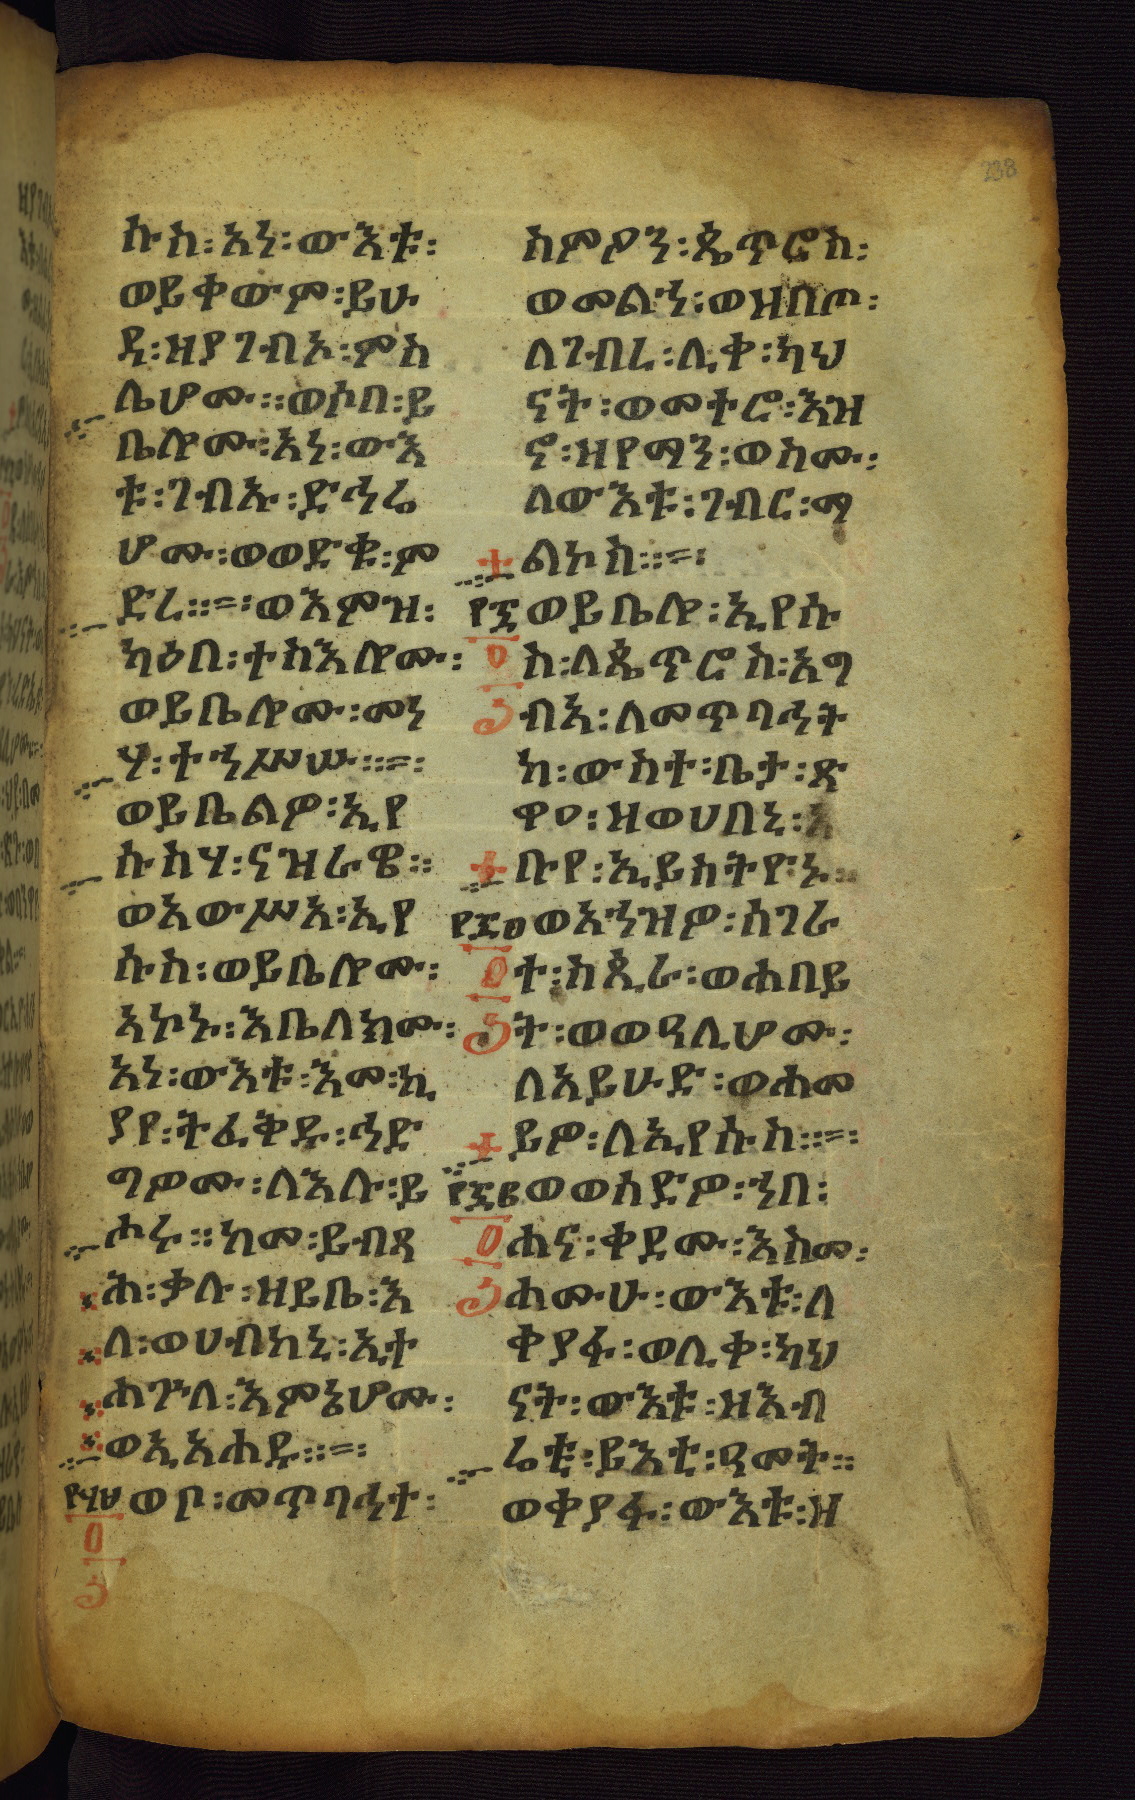 238
ሱስ፡አነ፡ውእቱ፡
ወይቀውም፡ይሁ
ዳ፡ዘያገብኦ፡ምስ
ሌሆሙ።ወሶበ፡ይ
ቤሎሙ፡አነ፡ውእ
ቱ፡ገብኡ፡ድኅሬ
ሆሙ፡ወወድቁ፡ም
ድረ።=፡ወእምዝ፡
ካዕበ፡ተስእሎሙ፡
ወይቤሎሙ፡መነ
ሃ፡ተኀሥሡ።=፡
ወይቤልዎ፡ኢየ
ሱስሃ፡ናዝራዌ።
ወአውሥአ፡ኢየ
ሱስ፡ወይቤሎሙ፡
አኮኑ፡እቤለክሙ፡
አነ፡ውእቱ፡እመ፡ኪ
ያየ፡ትፈቅዱ፡ኅድ
ግዎሙ፡ለእሉ፡ይ
ሑሩ።ከመ፡ይብጻ
ሕ፡ቃሉ፡ዘይቤ፡እ
ለ፡ወሀብከኒ፡ኢተ
ሐጕለ፡እምኔሆሙ፡
ወኢአሐዱ።=፡
ወቦ፡መጥባሕተ፡
ስምዖን፡ጴጥሮስ፡
ወመልኀ፡ወዝበጦ፡
ለገብረ፡ሊቀ፡ካህ
ናት፡ወመተሮ፡እዝ
ኖ፡ዘየማን፡ወስሙ፡
ለውእቱ፡ገብር፡ማ
ልኮስ።=፡
ወይቤሎ፡ኢየሱ
ስ፡ለጴጥሮስ፡አግ
ብእ፡ለመጥባሕት
ከ፡ውስተ፡ቤታ፡ጽ
ዋዐ፡ዘወሀበኒ፡አ
ቡየ፡ኢይስትዮኑ።
ወአኀዝዎ፡ሰገራ
ት፡ሐጺራ፡ወሐበይ
ት፡ወወዓሊሆሙ፡
ለአይሁድ፡ወሐመ
ይዎ፡ለኢየሱስ።=፡
ወወሰድዎ፡ኀበ፡
ሐና፡ቀዲሙ፡እስመ፡
ሐሙሁ፡ውእቱ፡ለ
ቀያፋ፡ወሊቀ፡ካህ
ናት፡ውእቱ፡ዘእብ
ሬቲ፡ይእቲ፡ዓመት።
ወቀያፋ፡ውእቱ፡ዘ